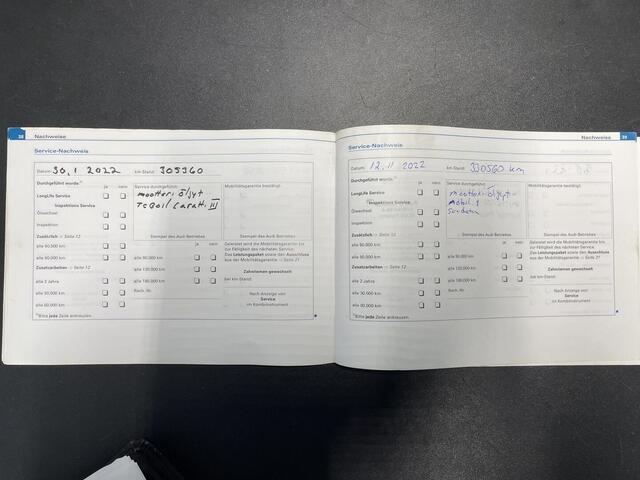 38 Nachweise
Service-Nachweis
Datum: 30.1 2022 km-Stand: 305360
Durchgeführt wurde:
ja nein
Service durchgeführt:
Mobilitätsgarantie bestätigt:
LongLife Service
moottori öljyt
Inspektions Service
Ölwechsel
Inspektion
Stempel des Audi Betriebes
Stempel des Audi Betriebes
Zusätzlich -> Seite 12
ja nein
Geleistet wird die Mobilitätsgarantie bis
zur Fälligkeit des nächsten Service.
alle 60.000 km
alle 90.000 km
Das Leistungspaket sowie den Ausschluss
aus der Mobilitätsgarantie -> Seite 21
Zusatzarbeiten -> Seite 12
alle 120.000 km
Zahnriemen gewechselt
alle 2 Jahre
alle 180.000 km
bei km-Stand:
alle 30.000 km
Rech.-Nr.
Nach Anzeige von
Service
im Kombiinstrument
alle 60.000 km
Bitte jede Zeile ankreuzen.
Nachweise 39
Service-Nachweis
Datum: 12.11 2022 km-Stand: 330560 km
Durchgeführt wurde:
ja nein
Service durchgeführt:
Mobilitätsgarantie bestätigt:
LongLife Service
moottori öljyt
Inspektions Service
Mobil 1
Ölwechsel
Inspektion
Stempel des Audi Betriebes
Stempel des Audi Betriebes
Zusätzlich -> Seite 12
ja nein
Geleistet wird die Mobilitätsgarantie bis
zur Fälligkeit des nächsten Service.
alle 60.000 km
alle 90.000 km
Das Leistungspaket sowie den Ausschluss
aus der Mobilitätsgarantie -> Seite 21
Zusatzarbeiten -> Seite 12
alle 120.000 km
Zahnriemen gewechselt
alle 2 Jahre
alle 180.000 km
bei km-Stand:
alle 30.000 km
Rech.-Nr.
Nach Anzeige von
Service
im Kombiinstrument
alle 60.000 km
Bitte jede Zeile ankreuzen.